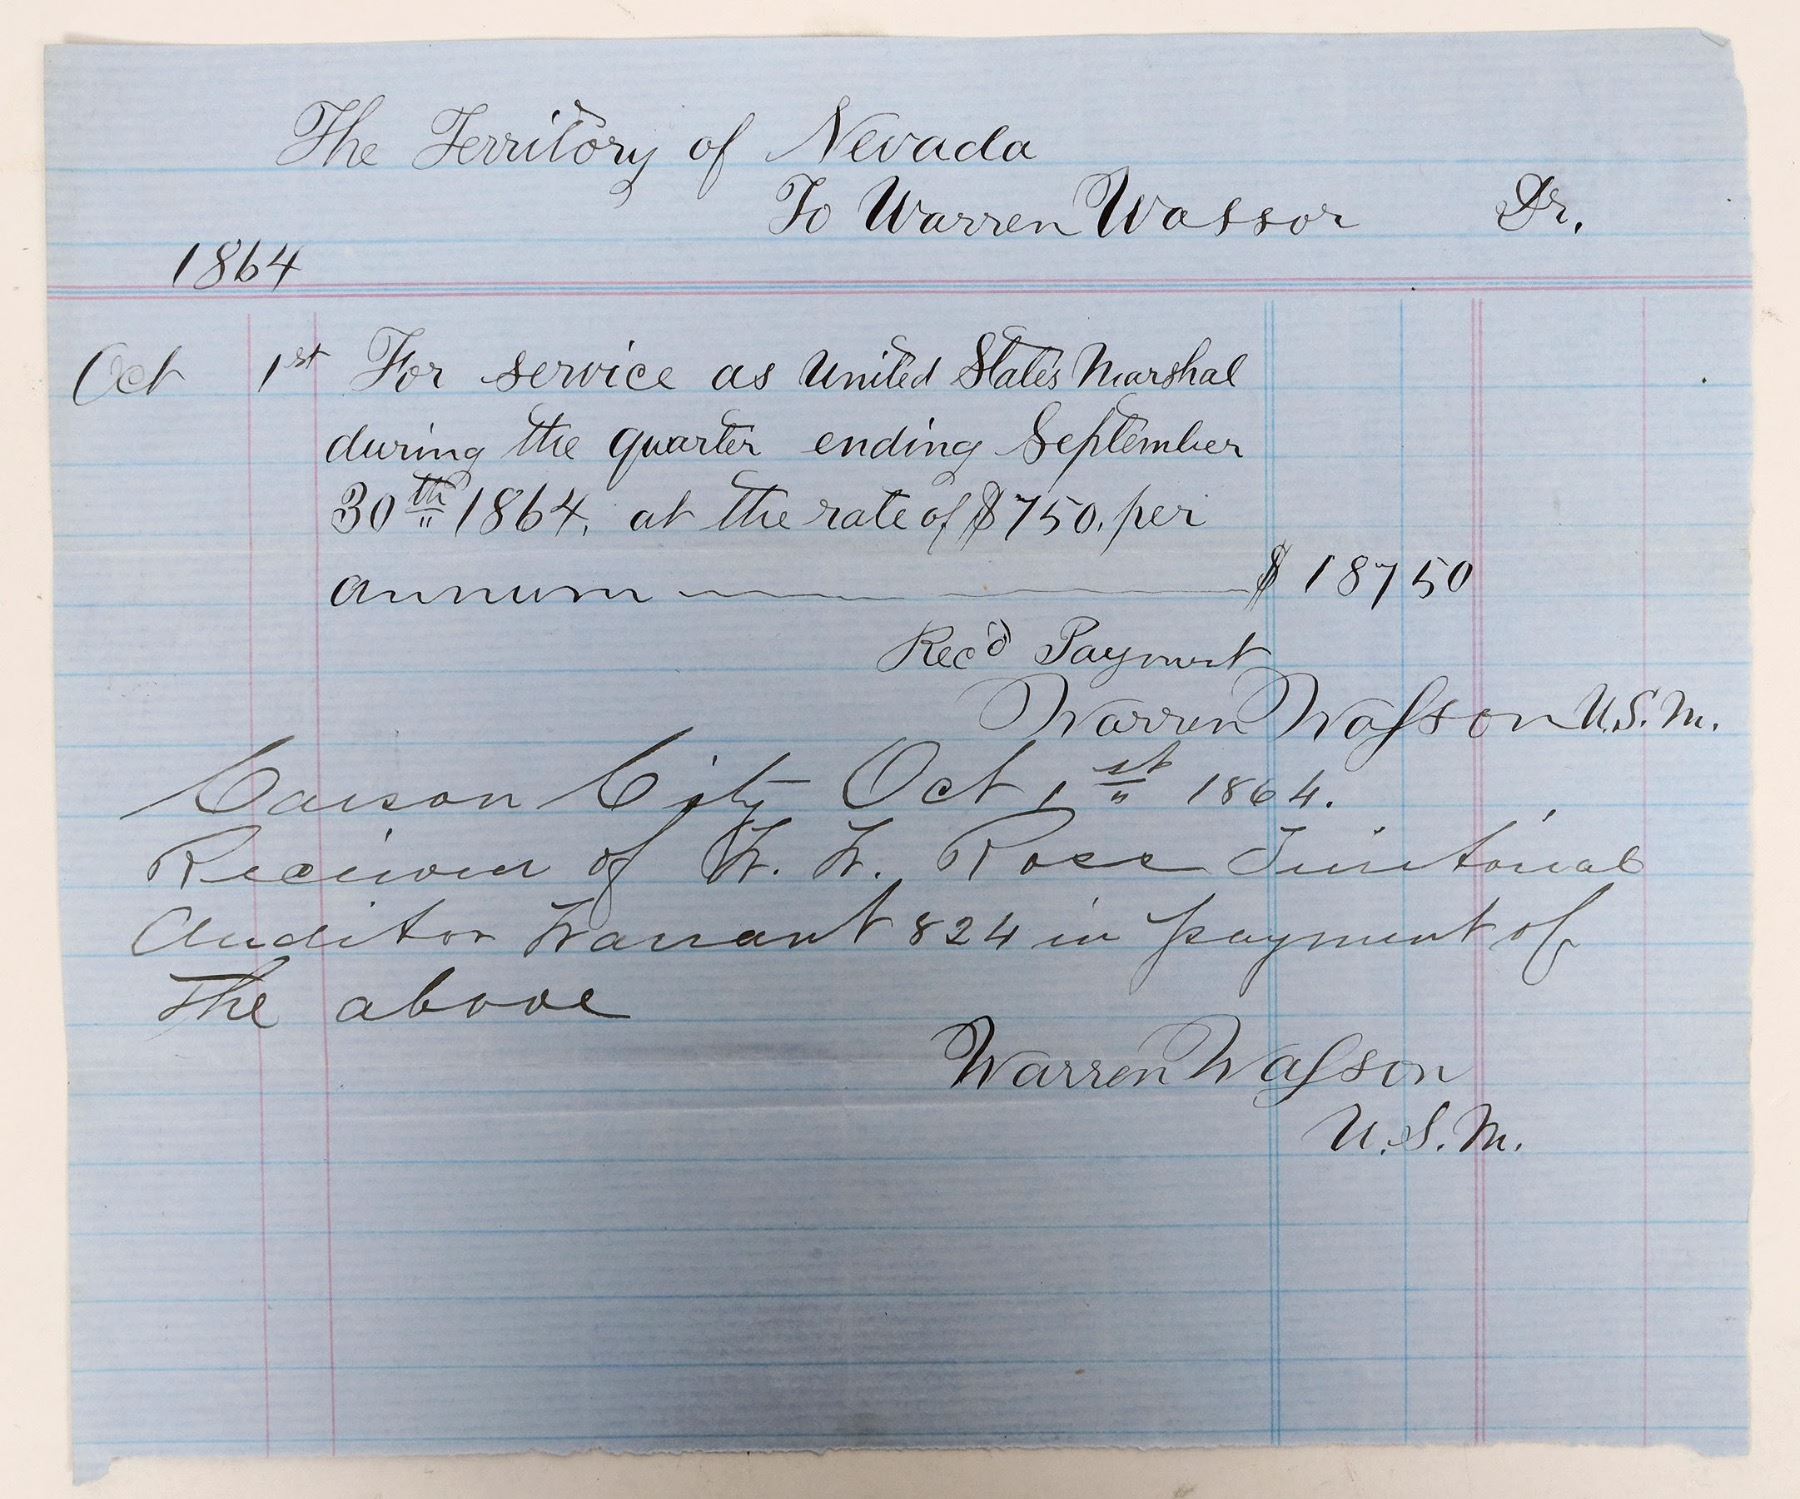 The Territory of Nevada
To Warren Wasson Dr.
1864
Oct 1st For service as United States Marshal
during the quarter ending September
30th 1864, at the rate of $750. per
annum $ 187 50
Rec'd Payment
Warren Wasson U.S.M.
Carson City Oct 1st 1864.
Received of W. W. Ross Territorial
Auditor Warrant 824 in payment of
the above
Warren Wasson
U.S.M.